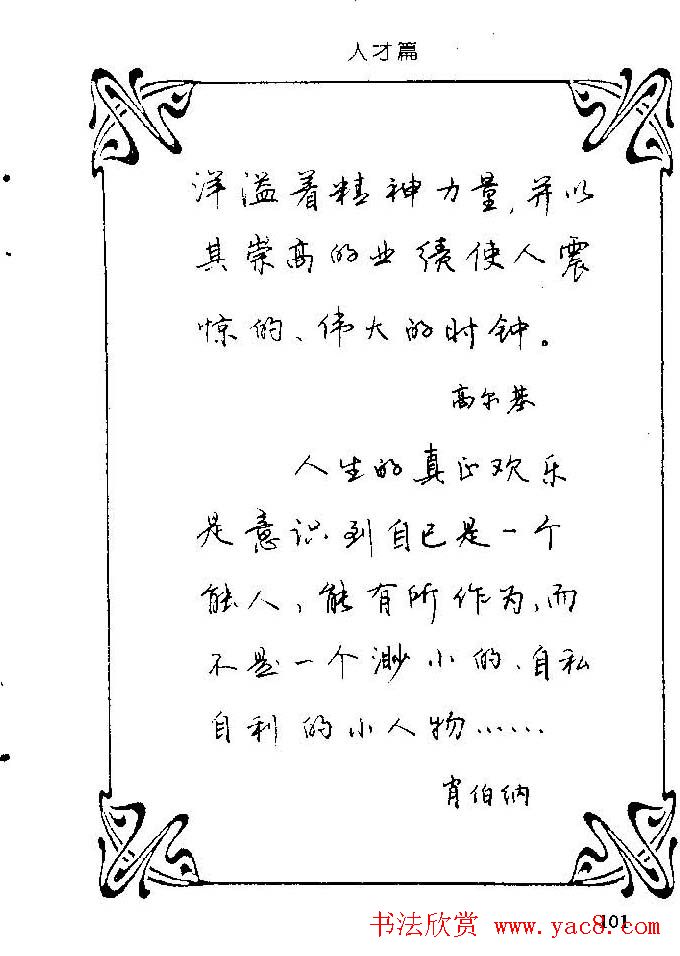 人才篇
洋溢着精神力量，并以
其崇高的业绩使人震
惊的、伟大的时钟。
高尔基
人生的真正欢乐
是意识到自己是一个
能人，能有所作为，而
不是一个渺小的、自私
自利的小人物……
肖伯纳
101
书法欣赏 www.yac8.com